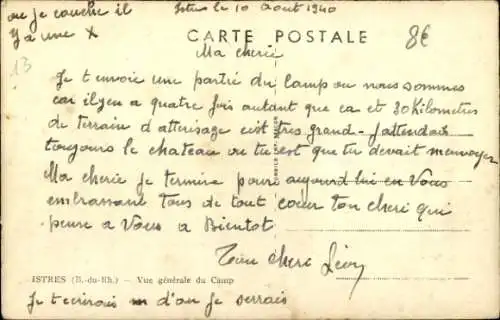 ou je couche il
y a une X
Istres le 10 Aout 1940
CARTE POSTALE
8€
13
Ma cherie
Je t envoie une partie du camp ou nous sommes
car il y en a quatre fois autant que ca et 30 Kilometres
de terrain d atterisage c est tres grand - J attendais
toujours le chateau ou tu est que tu devait m envoyer
Ma cherie je termine pour aujourd hui en Vous
embrassant tous de tout cœur ton cheri qui
pense a Vous a Bientot
Ton cheri Léon
ISTRES (B.-du-Rh.) — Vue générale du Camp
Je t ecrirais d ou je serrais